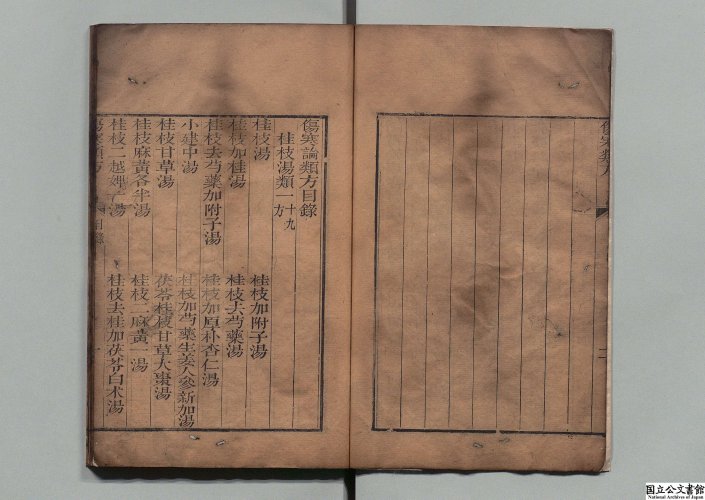 傷寒類方
二
傷寒論類方目錄
桂枝湯類一十九方
桂枝湯
桂枝加附子湯
桂枝加桂湯
桂枝去芍藥湯
桂枝去芍藥加附子湯
桂枝加厚朴杏仁湯
小建中湯
桂枝加芍藥生姜人參新加湯
桂枝甘草湯
茯苓桂枝甘草大棗湯
桂枝麻黃各半湯
桂枝二麻黃一湯
桂枝二越婢一湯
桂枝去桂加茯苓白术湯
傷寒類方
目錄
一
国立公文書館
National Archives of Japan